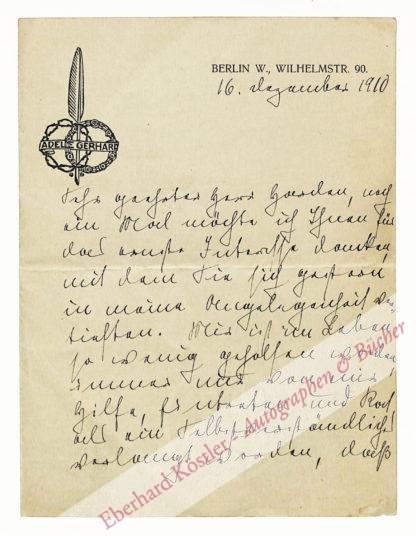 BERLIN W., WILHELMSTR. 90.
16. Dezember 1910
ADELE GERHARD
Sehr geehrter Herr Harden, noch
ein Mal möchte ich Ihnen für
das ernste Interesse danken,
mit dem Sie sich gestern
in meine Angelegenheit ver-
tieften. Mir ist im Leben
so wenig geholfen worden
immer nur von mir
Hilfe, und Rat
als ein Selbstverständliches
verlangt worden, daß
Eberhard Köstler - Autographen & Bücher